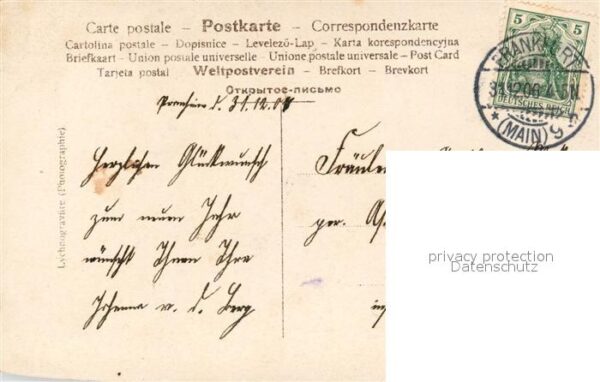 Carte postale – Postkarte – Correspondenzkarte
Cartolina postale – Dopisnice – Levelező-Lap – Karta korespondencyjna
Briefkaart – Union postale universelle – Unione postale universale – Post Card
Tarjeta postal – Weltpostverein – Brefkort – Brevkort
Открытое-письмо
5 5
DEUTSCHES REICH
FRANKFURT
31.12.06. 4-5N.
* (MAIN) 9
d. 31.12.06
Herzlichen Glückwunsch
zum neuen Jahr
wünscht Ihnen Ihre
Johanna v. d. Berg
Fräulein
per.
Lychnogravüre (Photographie)
privacy protection
Datenschutz